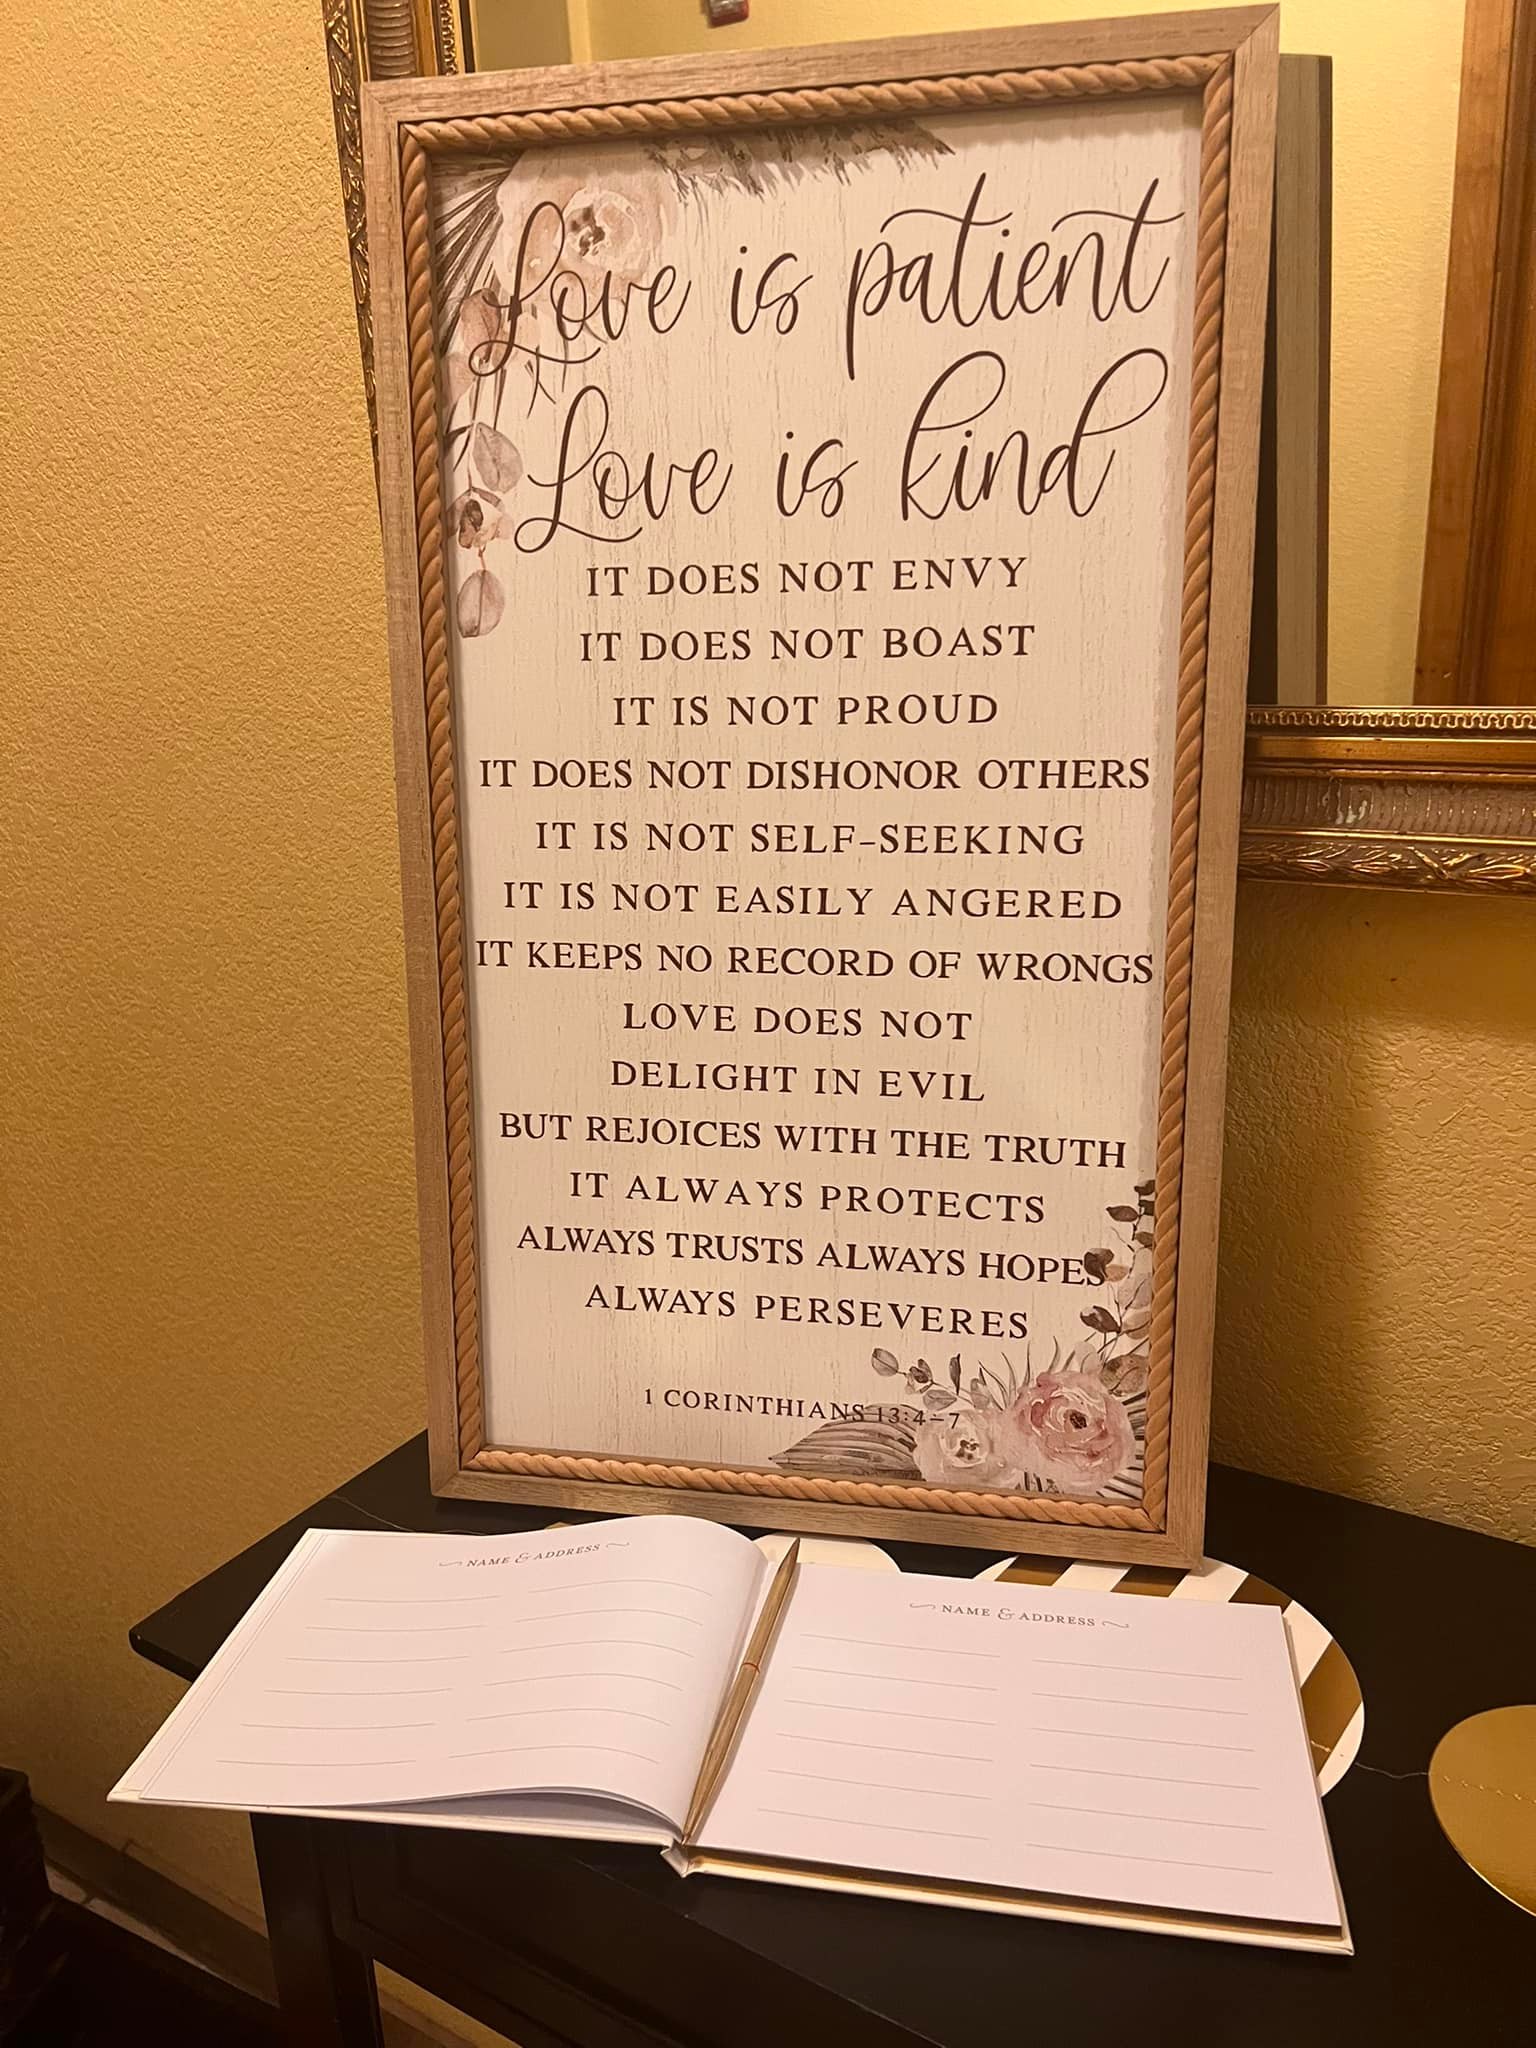 Love is patient
Love is kind
IT DOES NOT ENVY
IT DOES NOT BOAST
IT IS NOT PROUD
IT DOES NOT DISHONOR OTHERS
IT IS NOT SELF-SEEKING
IT IS NOT EASILY ANGERED
IT KEEPS NO RECORD OF WRONGS
LOVE DOES NOT
DELIGHT IN EVIL
BUT REJOICES WITH THE TRUTH
IT ALWAYS PROTECTS
ALWAYS TRUSTS ALWAYS HOPES
ALWAYS PERSEVERES
1 CORINTHIANS 13:4-7
NAME & ADDRESS
NAME & ADDRESS